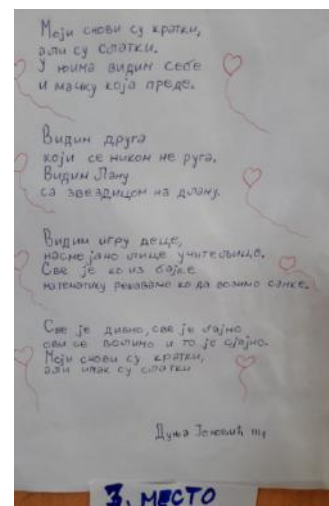 Моји снови су кратки,
али су слатки.
У њима видим себе
и мачку која преде.
Видим друга
који се ником не руга.
Видим Лану
са звездицом на длану.
Видим игру деце,
насмејано лице учитељице.
Све је ко из бајке
математику решавамо ко да возимо санке.
Све је дивно, све је бајно
сви се волимо и то је сјајно.
Моји снови су кратки,
али ипак су слатки
Дуња
3. МЕСТО